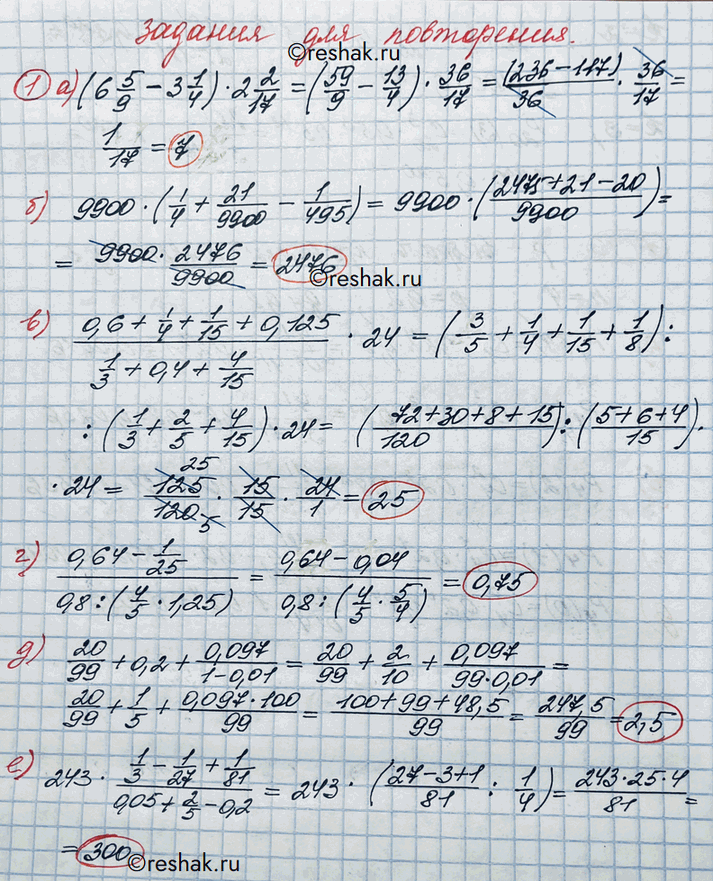 Задания для повторения.
©reshak.ru
① а) (6 5/9 − 3 1/4) · 2 2/17 = (59/9 − 13/4) · 36/17 = (236−117)/36 · 36/17 =
1/17 = 7
б) 9900 · (1/4 + 21/9900 − 1/495) = 9900 · (2475+21−20)/9900) =
= 9900 · 2476/9900 = 2476
©reshak.ru
в) (0,6 + 1/4 + 1/15 + 0,125)/(1/3 + 0,4 + 4/15) · 24 = (3/5 + 1/4 + 1/15 + 1/8) :
: (1/3 + 2/5 + 4/15) · 24 = (72+30+8+15)/120) : (5+6+4)/15) ·
· 24 = 125/120 · 15/15 · 24/1 = 25
25
5
г) (0,64 − 1/25)/(0,8 : (4/5 · 1,25)) = (0,64 − 0,04)/(0,8 : (4/5 · 5/4)) = 0,75
д) 20/99 + 0,2 + 0,097/(1−0,01) = 20/99 + 2/10 + 0,097/(99·0,01) =
20/99 + 1/5 + (0,097·100)/99 = (100+99+48,5)/99 = 247,5/99 = 2,5
е) 243 · (1/3 − 1/27 + 1/81)/(0,05 + 2/5 − 0,2) = 243 · ((27−3+1)/81 : 1/4) = (243·25·4)/81 =
= 300
©reshak.ru